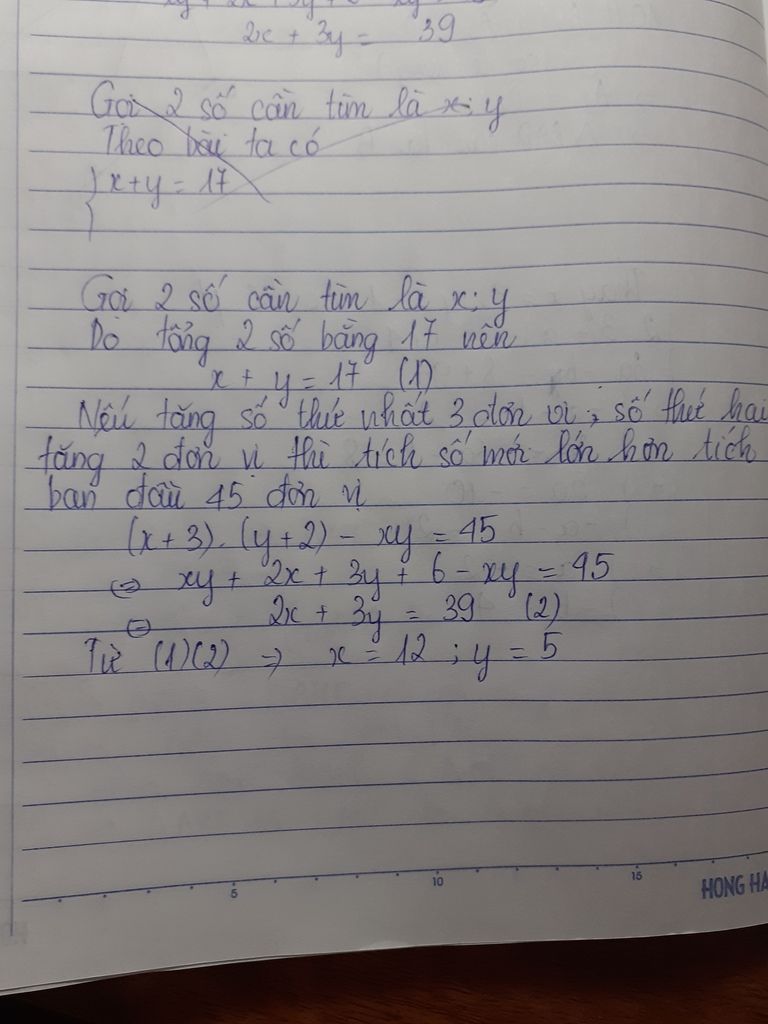 2x + 3y = 39
Gọi 2 số cần tìm là x; y
Theo bài ta có
x + y = 17
Gọi 2 số cần tìm là x; y
Do tổng 2 số bằng 17 nên
x + y = 17 (1)
Nếu tăng số thứ nhất 3 đơn vị, số thứ hai
tăng 2 đơn vị thì tích số mới lớn hơn tích
ban đầu 45 đơn vị
(x + 3). (y + 2) - xy = 45
⇔ xy + 2x + 3y + 6 - xy = 45
⇔ 2x + 3y = 39 (2)
Từ (1)(2) ⇒ x = 12 ; y = 5
5 10 15 HONG HA